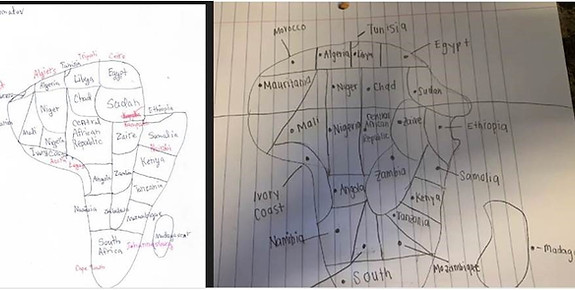 Algiers
Tunisia
Tripoli
Cairo
Algeria
Libya
Egypt
Niger
Chad
Sudan
Ethiopia
Mali
Central
African
Republic
Zaire
Somalia
Nigeria
Kenya
Lagos
Angola
Zambia
Tanzania
Namibia
Mozambique
South
Africa
Johannesburg
Madagascar
Cape Town
Morocco
Tunisia
Algeria
Libya
Egypt
Mauritania
Niger
Chad
Sudan
Mali
Nigeria
Central
African
Republic
Zaire
Ethiopia
Zambia
Somalia
Ivory
Coast
Angola
Kenya
Tanzania
Namibia
Mozambique
South
Madaga